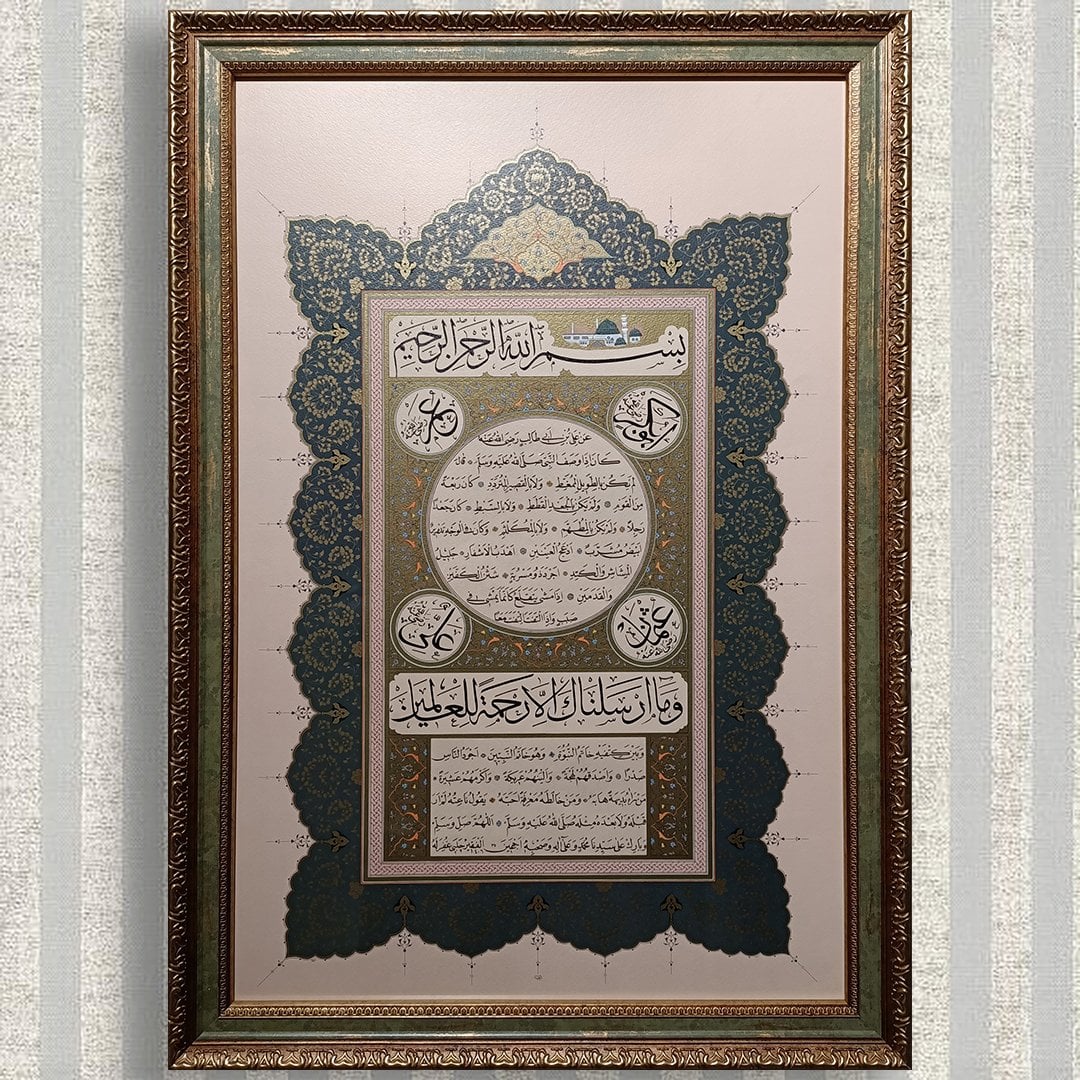 بسم الله الرحمن الرحيم
ابو بكر
عمر
عن علي بن ابي طالب رضي الله عنه
كان اذا وصف النبي صلى الله عليه وسلم قال
لم يكن بالطويل الممغط ولا بالقصير المتردد كان ربعة
من القوم ولم يكن بالجعد القطط ولا بالسبط كان جعدا
رجلا ولم يكن بالمطهم ولا بالمكلثم وكان في الوجه تدوير
ابيض مشرب ادعج العينين اهدب الاشفار جليل
المشاش والكتد اجرد ذو مسربة شثن الكفين
والقدمين اذا مشى يتقلع كانما يمشي في
صبب واذا التفت التفت معا
عثمان رضي الله عنه
علي
وما ارسلناك الا رحمة للعالمين
وبين كتفيه خاتم النبوة وهو خاتم النبيين اجود الناس
صدرا واصدقهم لهجة والينهم عريكة واكرمهم عشيرة
من رآه بديهة هابه ومن خالطه معرفة احبه يقول ناعته لم ار
قبله ولا بعده مثله صلى الله عليه وسلم اللهم صل وسلم
وبارك على سيدنا محمد وعلى آله وصحبه اجمعين الفقير چلبي غفر له